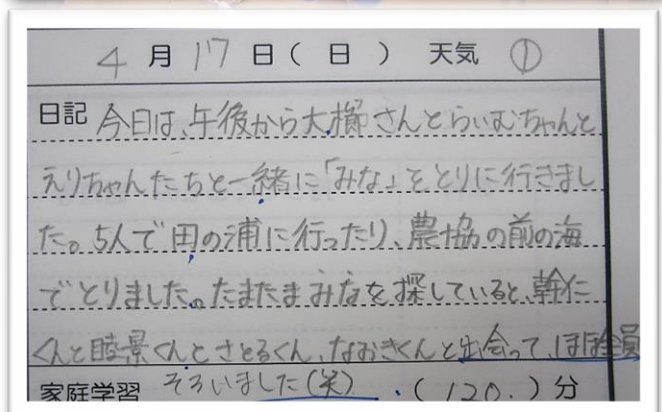 4月17日(日) 天気 ①
日記 今日は、午後から大櫛さんとらいむちゃんと
えりちゃんたちと一緒に「みな」をとりに行きまし
た。5人で田の浦に行ったり、農協の前の海
でとりました。たまたまみなを探していると、幹仁
くんと睦景くんとさとるくん、なおきくんと出会って、ほぼ全員
家庭学習 そろいました(笑) (120.)分